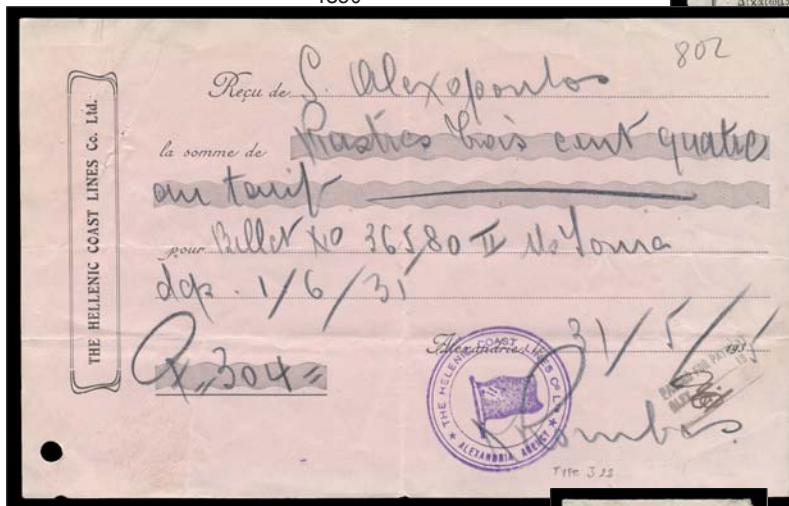 802
THE HELLENIC COAST LINES Co. Ltd.
Reçu de S. Alexopoulos
la somme de Piastres trois cent quatre
au tarif
pour Billet No 36580 II
dép. 1/6/31
Alexandrie, 31/5/ 193
P. 304
THE HELENIC COAST LINES Co LTD
ALEXANDRIA AGENCY
TYPE 322